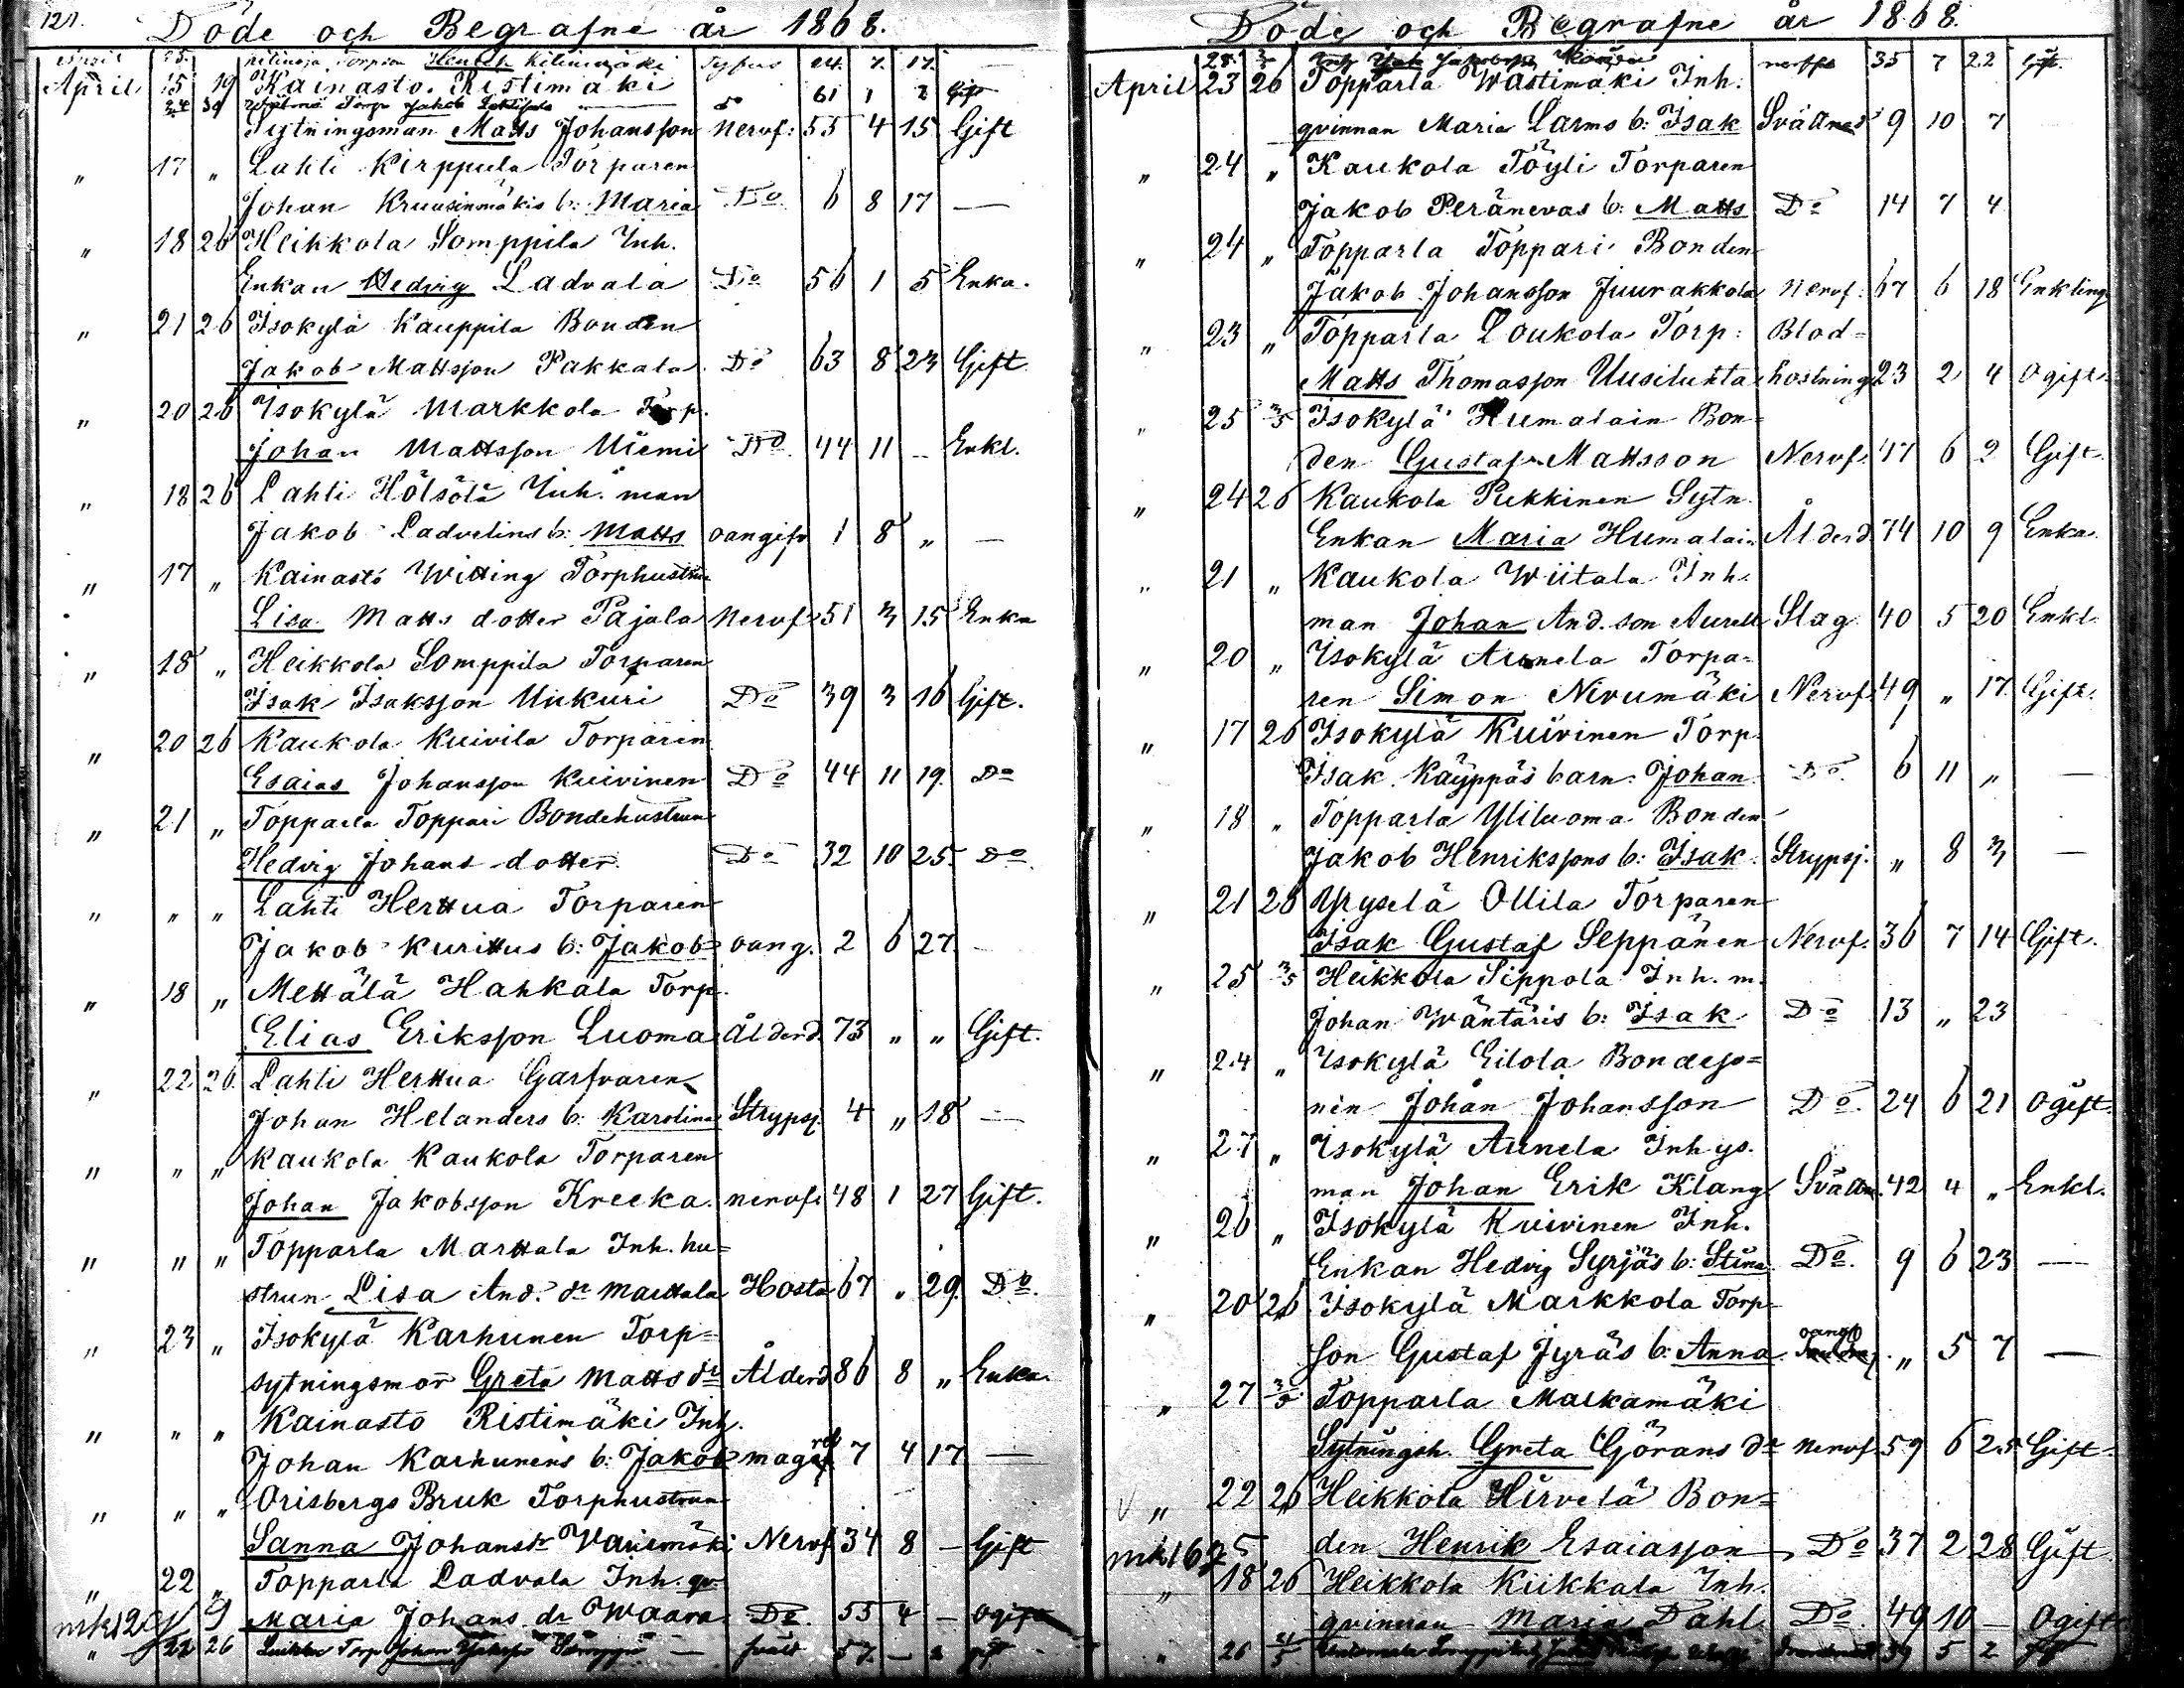 121.
Döde och Begrafne år 1868.
April 15 19 Kainasto Ristimäki
Sytningsman Matts Johansson Nervf: 55 4 15 Gift
" 17 " Lahti Kirppula Torparen
Johan Kruusinmäkis b: Maria Do 6 8 17 —
" 18 26 Heikkola Somppila Inh.
Enkan Hedvig Ladvala Do 56 1 5 Enka.
" 21 26 Isokylä Kauppila Bonden
Jakob Mattsson Pakkala Do 63 8 23 Gift
" 20 26 Isokylä Markkola Torp.
Johan Mattsson Niemi Do. 44 11 - Enkl.
" 18 26 Lahti Hölsölä Inh. man
Jakob Ladvelins b: Matts oangifv 1 8 " —
" 17 " Kainasto Witting Torphustrun
Lisa Matts dotter Pajala Nervf: 51 3 15 Enka
" 18 " Heikkola Somppila Torparen
Isak Isaksson Unkuri Do 39 3 16 Gift.
" 20 26 Kaukola Kuivila Torparen
Esaias Johansson Kuivinen Do 44 11 19. Do
" 21 " Topparla Toppari Bondehustrun
Hedvig Johans dotter Do 32 10 25. Do
" " " Lahti Herttua Torparen
Jakob Kurittus b: Jakob oang. 2 6 27. -
" 18 " Mettälä Hahkala Torp.
Elias Eriksson Luoma Ålderd. 73 " " Gift.
" 22 26. Lahti Herttua Garfvaren
Johan Helanders b: Karolina Strypsj. 4 " 18 —
" " " Kaukola Kaukola Torparen
Johan Jakobsson Kreeka. nervf. 48 1 27 Gift.
" " " Topparla Marttala Inh. hu=
strun Lisa And. dr Marttala Hosta 67 " 29. Do.
" 23 " Isokylä Karhunen Torp=
sytningsmor Greta Matts dr Ålderd 86 8 " Enka.
" " " Kainasto Ristimäki Inh.
Johan Karhunens b: Jakob magref 7 4 17 —
" " " Orisbergs Bruk Torphustrun
Sanna Johansdr Vainimäki Nervf 34 8 — Gift
" 22 " Topparla Ladvala Inh. qv.
Maria Johans dr Waara Do. 55 4 — ogift
" 22 26
Döde och Begrafne år 1868.
35 7 22 Gift.
April 23 26 Topparla Wästimäki Inh.
qvinnan Maria Larms b: Isak Svällnad 9 10 7
" 24 " Kaukola Töyli Torparen
Jakob Peränevas b: Matts Do 14 7 4
" 24 " Topparla Toppari Bonden
Jakob Johansson Juurakkola Nervf. 67 6 18 Enkling
" 23 " Topparla Loukola Torp: Blod=
Matts Thomasson Uusiluhta hostning 23 2 4 Ogift.
" 25 3/5 Isokylä Humalain Bon=
den Gustaf Mattsson Nervf. 47 6 2 Gift.
" 24 26 Kaukola Pukkinen Sytn.
Enkan Maria Humalain Ålderd 74 10 9 Enka.
" 21 " Kaukola Wiitala Inh.
man Johan And. son Aurell Slag. 40 5 20 Enkl.
" 20 " Isokylä Annela Torpa=
ren Simon Nivumäki Nervf. 49 " 17. Gift.
" 17 26 Isokylä Kuivinen Torp.
Isak Käyppäs barn. Johan. Do. 6 11 " —
" 18 " Topparla Yliluoma Bonden
Jakob Henrikssons b: Isak. Strypsj. " 8 3 —
" 21 26 Yryselä Ollila Torparen
Isak Gustaf Seppänen Nervf. 36 7 14 Gift.
" 25 3/5 Heikkola Sippola Inh. m.
Johan Wäntäris b: Isak Do 13 " 23
" 24 " Isokylä Eilola Bondeso=
nen Johan Johansson Do. 24 6 21 Ogift.
" 27 " Isokylä Annela Inhys.
man Johan Erik Klang Svälln. 42 4 " Enkl.
" 26 " Isokylä Kuivinen Inh.
Enkan Hedvig Syrjäs b: Stina Do. 9 6 23 —
" 20 26 Isokylä Markkola Torp=
son Gustaf Jyräs b: Anna oangf. " 5 7 —
" 27 3/5 Topparla Malkamäki
Sytningsh. Greta Görans dr nervf 59 6 25 Gift
" 22 26 Heikkola Hirvelä Bon=
den Henrik Esaiasson Do 37 2 28 Gift
" 18 26 Heikkola Kiikkala Inh.
qvinnan Maria Dahl Do. 49 10 — Ogift
" 26 39 5 2